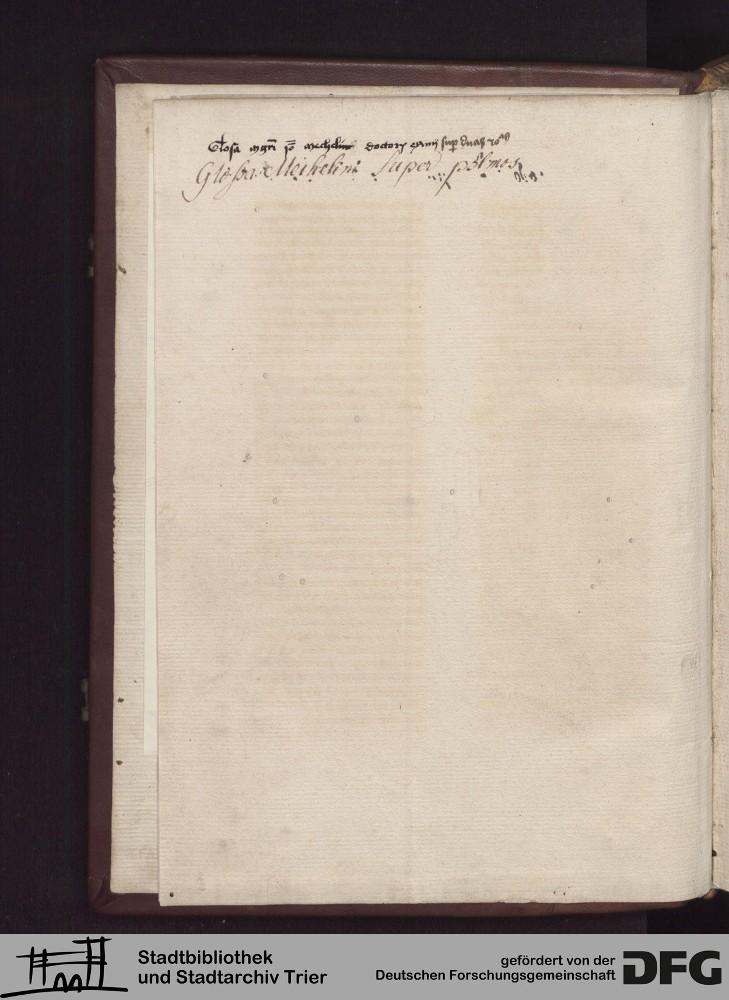 Glosa mgri Jo mechelinie doctoris
Glossa Meihelini super pslmos
Stadtbibliothek
und Stadtarchiv Trier
gefördert von der
Deutschen Forschungsgemeinschaft
DFG